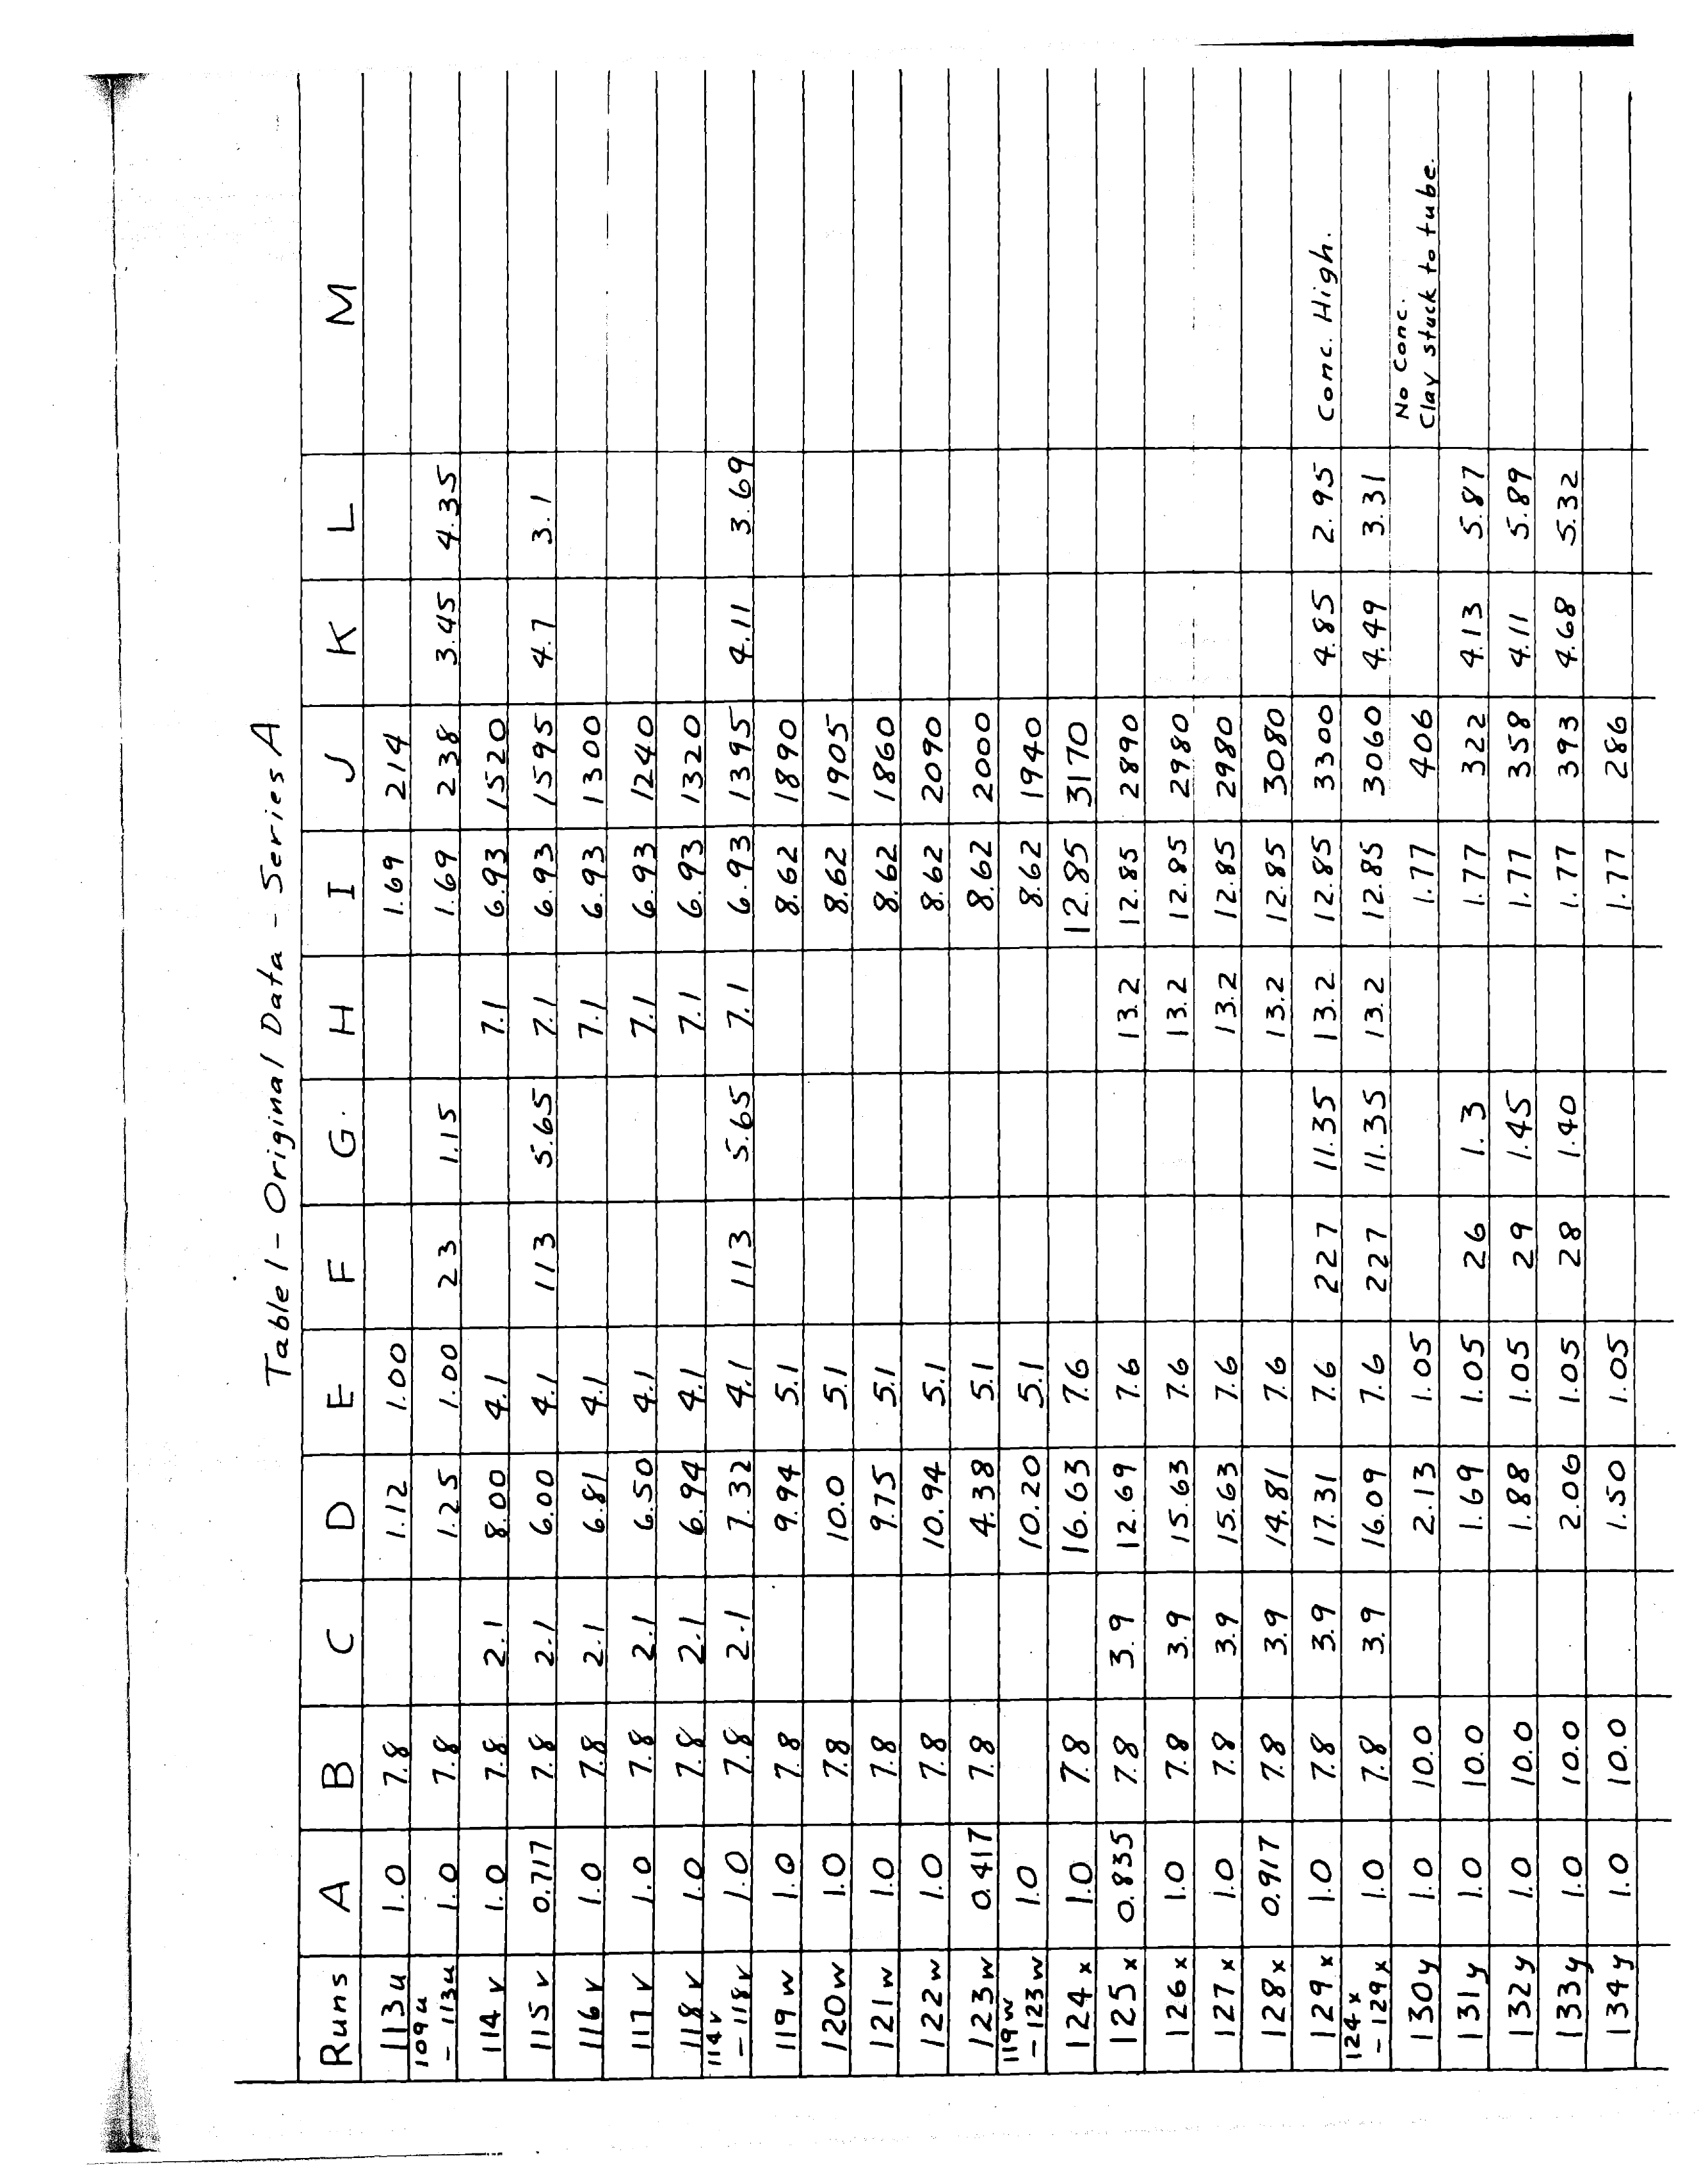 Table 1 - Original Data - Series A
Runs A B C D E F G. H I J K L M
113u 1.0 7.8 1.12 1.00 1.69 214
109u
- 113u 1.0 7.8 1.25 1.00 23 1.15 1.69 238 3.45 4.35
114v 1.0 7.8 2.1 8.00 4.1 7.1 6.93 1520
115v 0.717 7.8 2.1 6.00 4.1 113 5.65 7.1 6.93 1595 4.7 3.1
116v 1.0 7.8 2.1 6.81 4.1 7.1 6.93 1300
117v 1.0 7.8 2.1 6.50 4.1 7.1 6.93 1240
118v 1.0 7.8 2.1 6.94 4.1 7.1 6.93 1320
114v
- 118v 1.0 7.8 2.1 7.32 4.1 113 5.65 7.1 6.93 1395 4.11 3.69
119w 1.0 7.8 9.94 5.1 8.62 1890
120w 1.0 7.8 10.0 5.1 8.62 1905
121w 1.0 7.8 9.75 5.1 8.62 1860
122w 1.0 7.8 10.94 5.1 8.62 2090
123w 0.417 7.8 4.38 5.1 8.62 2000
119w
- 123w 1.0 10.20 5.1 8.62 1940
124x 1.0 7.8 16.63 7.6 12.85 3170
125x 0.835 7.8 3.9 12.69 7.6 13.2 12.85 2890
126x 1.0 7.8 3.9 15.63 7.6 13.2 12.85 2980
127x 1.0 7.8 3.9 15.63 7.6 13.2 12.85 2980
128x 0.917 7.8 3.9 14.81 7.6 13.2 12.85 3080
129x 1.0 7.8 3.9 17.31 7.6 227 11.35 13.2 12.85 3300 4.85 2.95 Conc. High.
124x
- 129x 1.0 7.8 3.9 16.09 7.6 227 11.35 13.2 12.85 3060 4.49 3.31
130y 1.0 10.0 2.13 1.05 1.77 406 No Conc.
Clay stuck to tube.
131y 1.0 10.0 1.69 1.05 26 1.3 1.77 322 4.13 5.87
132y 1.0 10.0 1.88 1.05 29 1.45 1.77 358 4.11 5.89
133y 1.0 10.0 2.06 1.05 28 1.40 1.77 393 4.68 5.32
134y 1.0 10.0 1.50 1.05 1.77 286